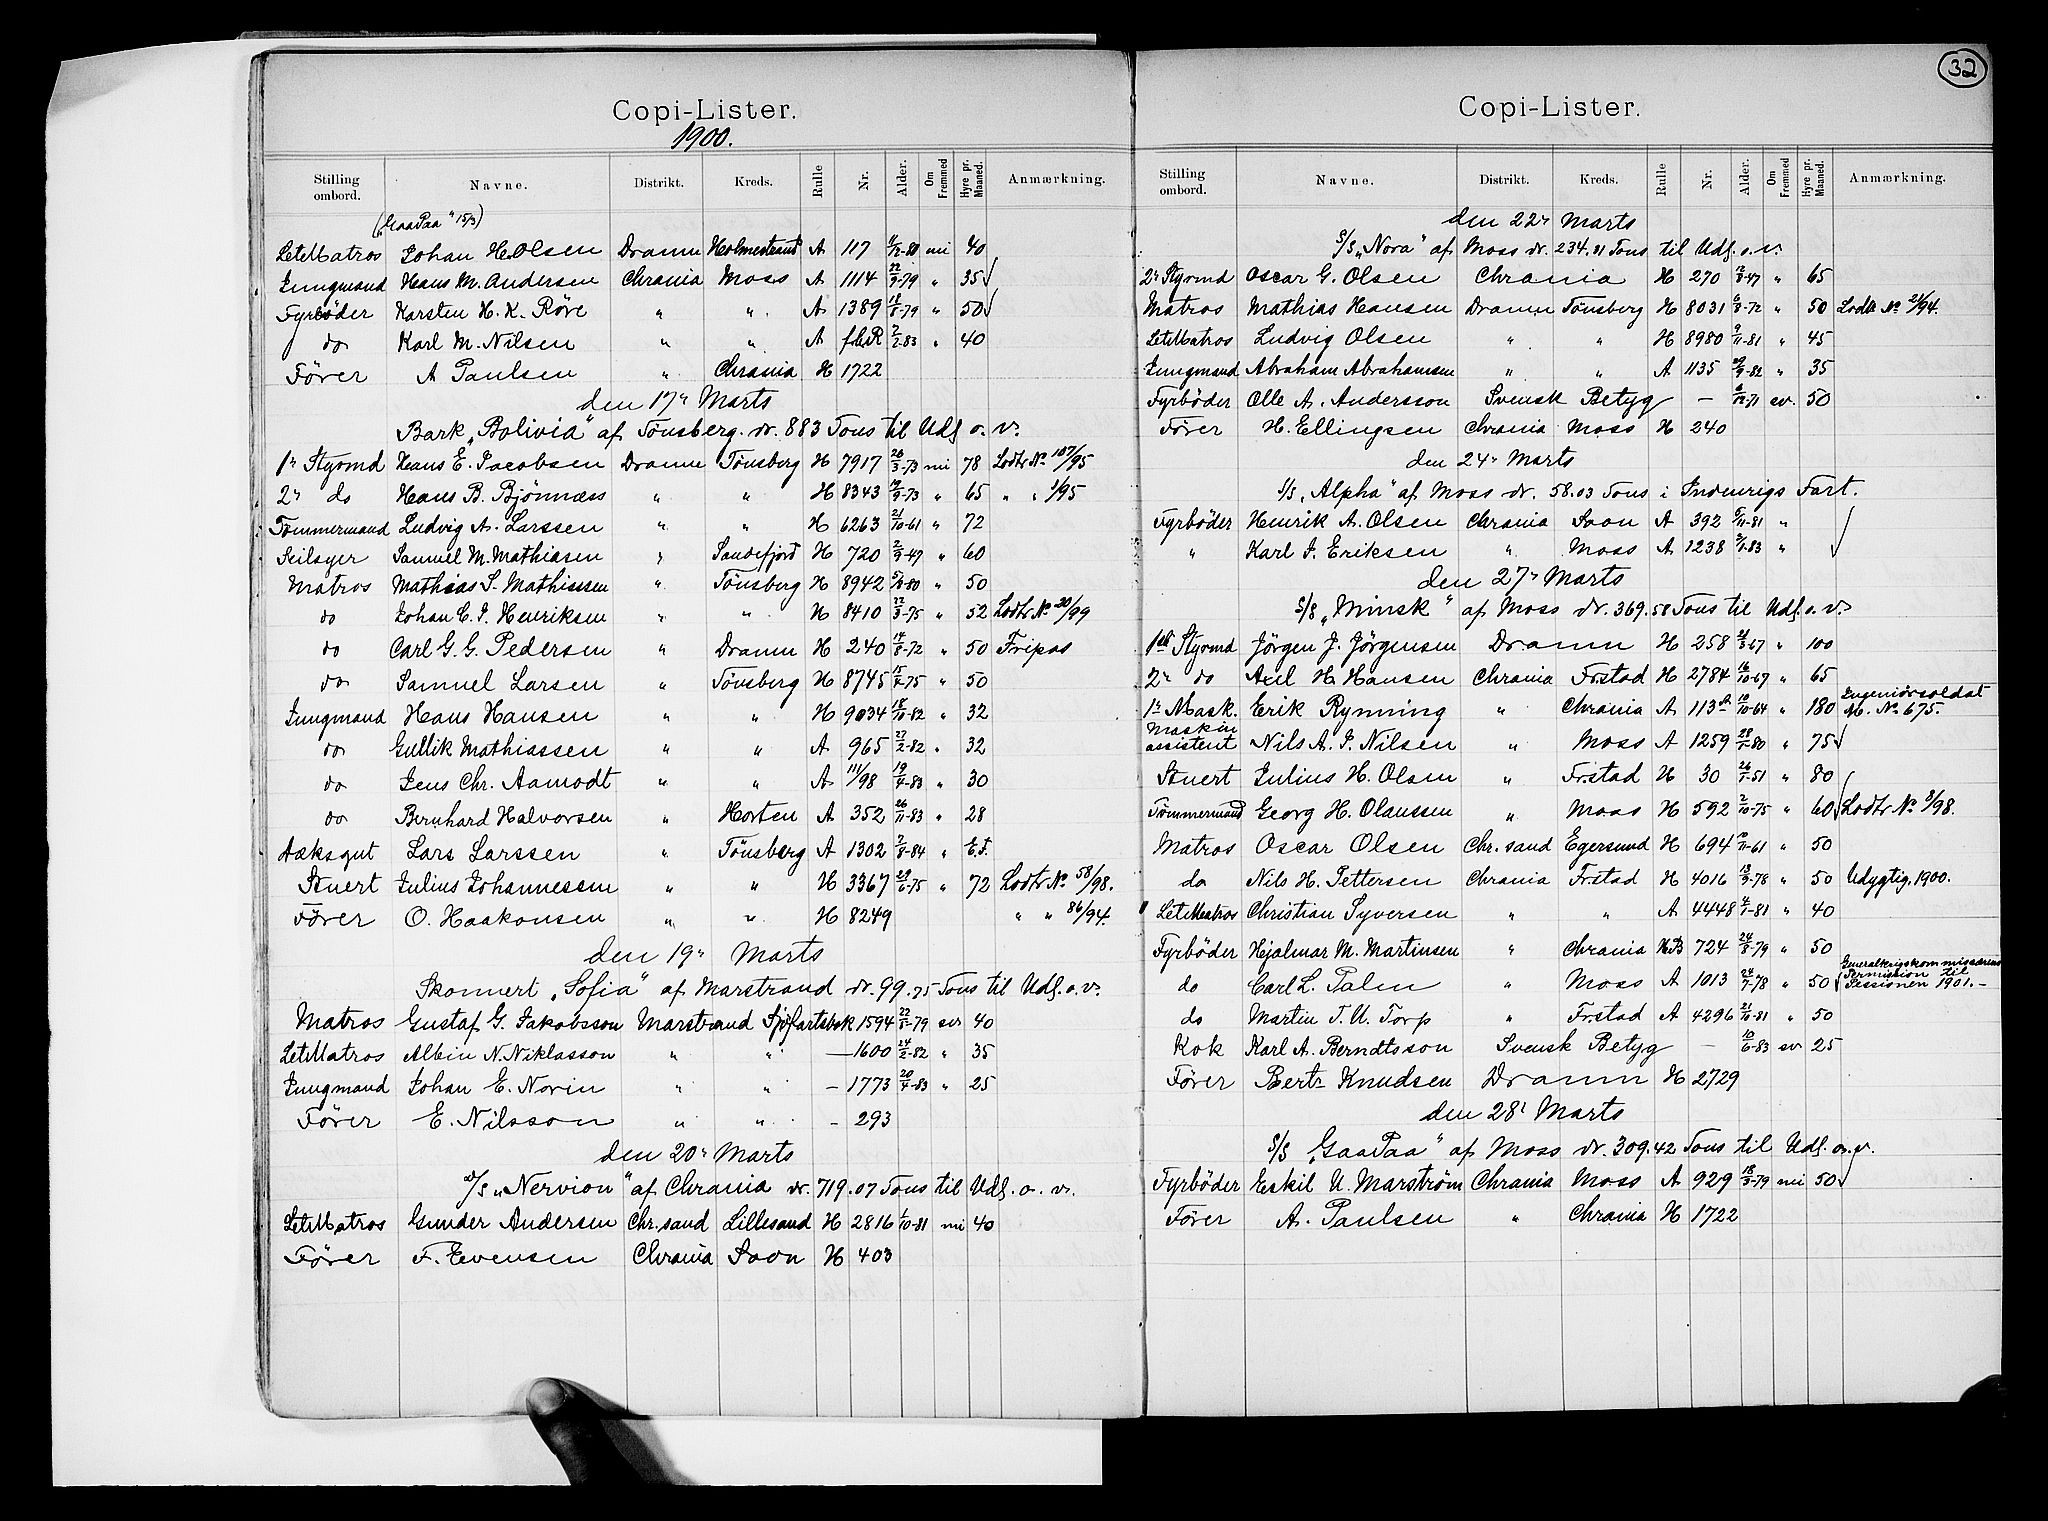 Copi-Lister.
1900.
Stilling ombord. Navne. Distrikt. Kreds. Rulle Nr. Alder. Om Fremmed Hyre pr. Maaned. Anmærkning.
("GaaPaa" 15/3)
LetMatros Johan H. Olsen Dramn Holmestrand A 117 /12-80 mi 40
Jungmand Hans M. Andersen Chrania Moss A 1114 22/9-79 " 35
Fyrböder Karsten H. K. Röve " " A 1389 18/8-79 " 50
do Karl M. Nilsen " " A 2/2-83 " 40
Förer A Paulsen " Chrania H 1722
den 17' Marts
Bark "Bolivia" af Tönsberg dr. 883 Tons til Udl. o. v.
1' Styrmd Hans E. Jacobsen Dramn Tönsberg H 7917 20/3-73 mi 78 Lodtr No 107/95
2' do Hans B. Bjönnæss " " H 8343 19/9-73 " 65 " " 1/95
Tömmermand Ludvig A. Larssen " " H 6263 21/10-61 " 72
Seilsyer Samuel M. Mathiasen " Sandefjord H 720 2/9-47 " 60
Matros Mathias S. Mathiesen " Tönsberg H 8942 -80 " 50
do Johan C. J. Henriksen " " H 8410 22/3-75 " 52 Lodtr No 30/99
do Carl G. G. Pedersen " Dramn H 240 14/8-72 " 50 Fripas
do Samuel Larsen " Tönsberg H 8745 -75 " 50
Jungmand Hans Hansen " " H 9034 18/10-82 " 32
do Gullik Mathiassen " " A 965 27/2-82 " 32
do Jens Chr. Aamodt " " A 111/98 19/4-83 " 30
do Bernhard Halvorsen " Horten A 352 26/11-83 " 28
Dæksgut Lars Larssen " Tönsberg A 1302 7/8-84 " E.F.
Stuert Julius Johannessen " " H 3367 29/6-75 " 72 Lodtr No 58/98.
Förer O. Haakonsen " " H 8249 " " 86/94.
den 19' Marts
Skonnert "Sofia" af Marstrand dr. 99.75 Tons til Udl. o. v.
Matros Gustaf G. Jakobsson Marstrand Sjöfartsbok 1594 22/5-79 sv 40
LetMatros Albin N. Niklasson " " — 1600 24/2-82 " 35
Jungmand Johan E. Norin " " - 1773 20/4-83 " 25
Förer E. Nilsson " " - 293
den 20' Marts
D/S "Nervion" af Chrania dr. 719.07 Tons til Udl. o. v.
LetMatros Gunder Andersen Chr.sand Lillesand H 2816 1/10-81 mi 40
Förer F. Evensen Chrania Soon H 403
32
Copi-Lister.
Stilling ombord. Navne. Distrikt. Kreds. Rulle Nr. Alder. Om Fremmed Hyre pr. Maaned. Anmærkning.
den 22' Marts
S/S "Nora" af Moss dr. 234.81 Tons til Udl. o. v.
2' Styrmd Oscar G. Olsen Chrania H 270 12/8-47 " 65
Matros Mathias Hansen Dramn Tönsberg H 8031 6/8-72 " 50 Lodtr No 21/94.
LetMatros Ludvig Olsen " " H 8980 9/11-81 " 45
Jungmand Abraham Abrahamsen " " A 1135 29/9-82 " 35
Fyrböder Olle A. Andersson Svensk Betyg — 6/12-71 sv. 50
Förer H. Ellingsen Chrania Moss H 240
den 24' Marts
S/S "Alpha" af Moss dr. 58.03 Tons i Indenrigs Fart.
Fyrböder Henrik A. Olsen Chrania Soon A 392 5/11-81 "
" Karl J. Eriksen " Moss A 1238 -83 "
den 27' Marts
S/S "Minsk" af Moss dr. 369.58 Tons til Udl. o. v.
1ste Styrmd Jörgen J. Jörgensen Dramn H 258 21/3-67 " 100
2' do Axel H Hansen Chrania Fr.stad H 2784 16/10-67 " 65
1' Mask. Erik Rynning " Chrania A 113 10/10-64 " 180 Ingeniörsoldat M. No 675.
Maskin assistent Nils A. J. Nilsen " Moss A 1259 28/1-80 " 75
Stuert Julius H. Olsen " Fr.stad H 30 26/1-51 " 80
Tömmermand Georg H. Olaussen " Moss H 592 2/10-75 " 60 Lodtr No 8/98.
Matros Oscar Olsen Chr.sand Egersund H 694 10/11-61 " 50
do Nils H. Pettersen Chrania Fr.stad H 4016 13/9-78 " 50 Udygtig. 1900.
LetMatros Christian Syversen " " A 4448 2/1-81 " 40
Fyrböder Hjalmar M. Martinsen " Chrania HB 724 24/8-79 " 50
do Carl L. Palm " Moss A 1013 24/7-78 " 50 Generalkrigskommisærens Permission til Sessionen 1901.-
do Martin T. U. Torp " Fr.stad A 4296 21/10-81 " 50
Kok Karl A. Berndtsson Svensk Betyg — 10/6-83 sv 25
Förer Bertr Knudsen Dramn H 2729
den 28' Marts
S/S "GaaPaa" af Moss dr. 309.42 Tons til Udl. o. v.
Fyrböder Eskil U. Marström Chrania Moss A 929 18/3-79 mi 50
Förer A. Paulsen " Chrania H 1722